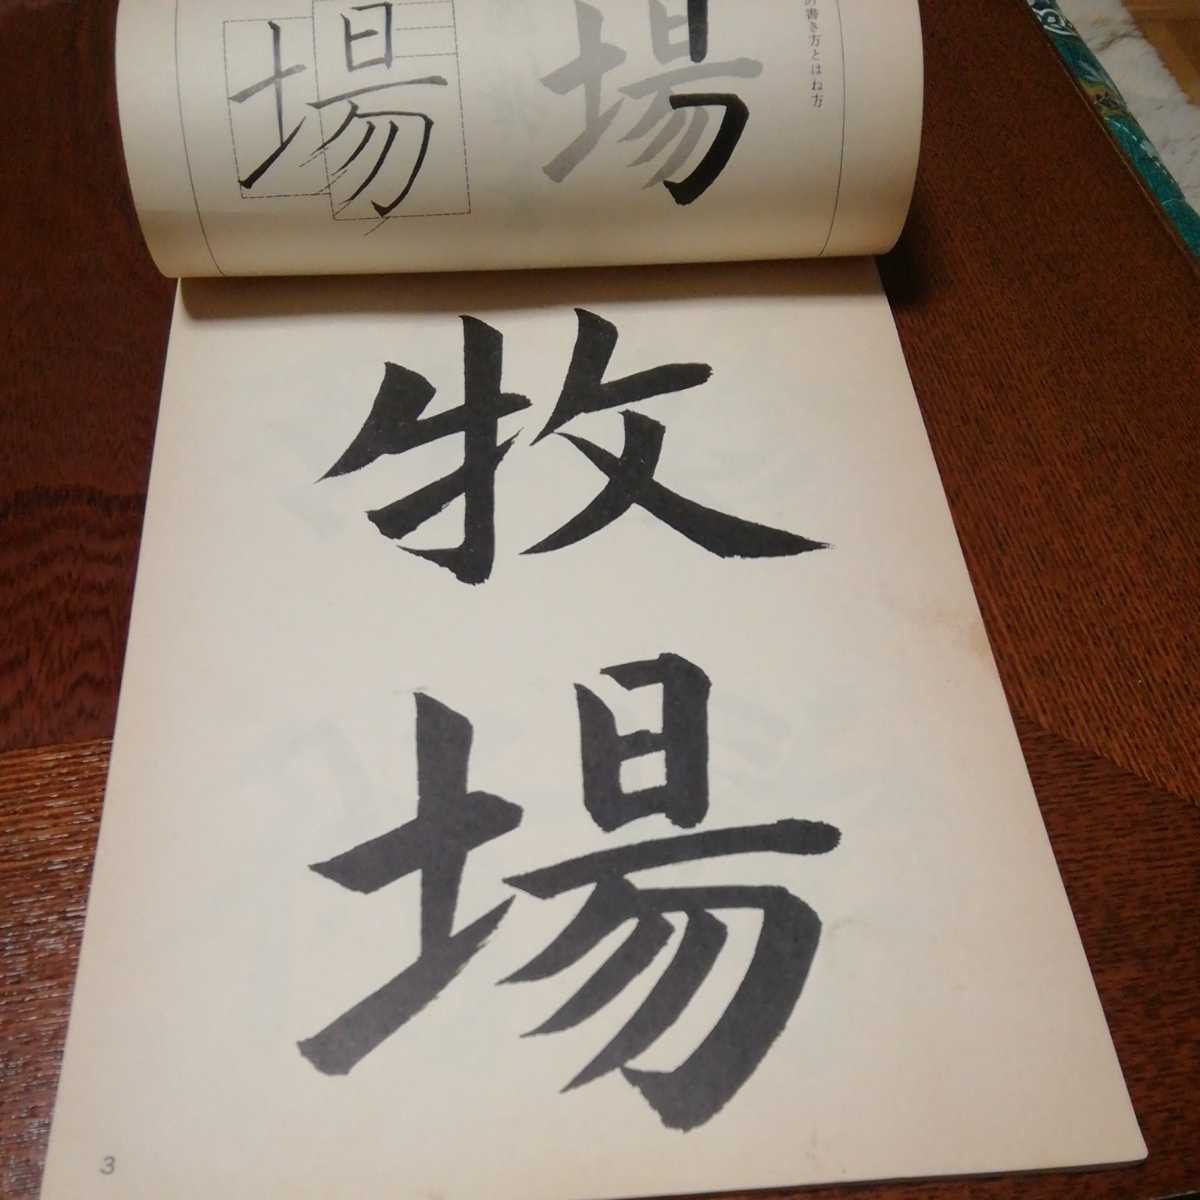 場
場
の書き方とはね方
牧
場
3